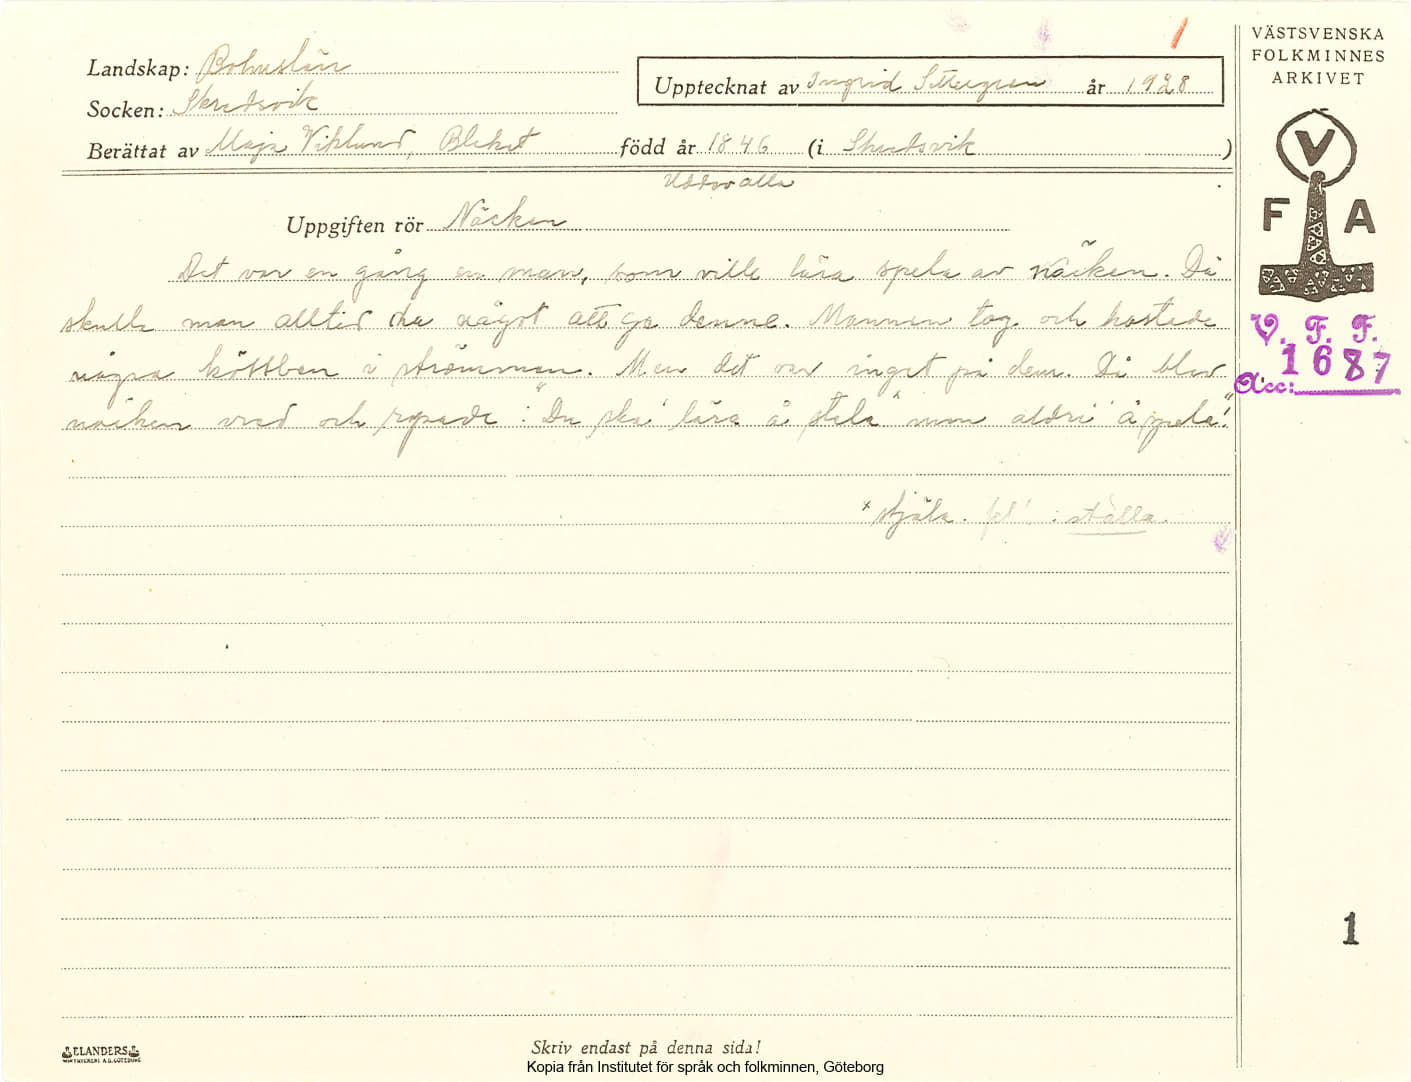 1
VÄSTSVENSKA
FOLKMINNES
ARKIVET
Landskap: Bohuslän
Upptecknat av Ingrid år 1928
Socken: Skredsvik
Berättat av Maja Viklund, Bleket född år 1846 (i Skredsvik )
Uddevalla
V
F A
Uppgiften rör Näcken
Det var en gång en man, som ville lära spela av näcken. Då
skulle man alltid ha något att ge denne. Mannen tog och kastade
några köttben i strömmen. Men det var inget på dem. Då blev
näcken vred och ropade: "Du ska' lära å stela* men aldri' å spela!"
V. F. F.
1687
Acc:
* stjäla. : ställa.
1
ELANDERS
Skriv endast på denna sida!
Kopia från Institutet för språk och folkminnen, Göteborg